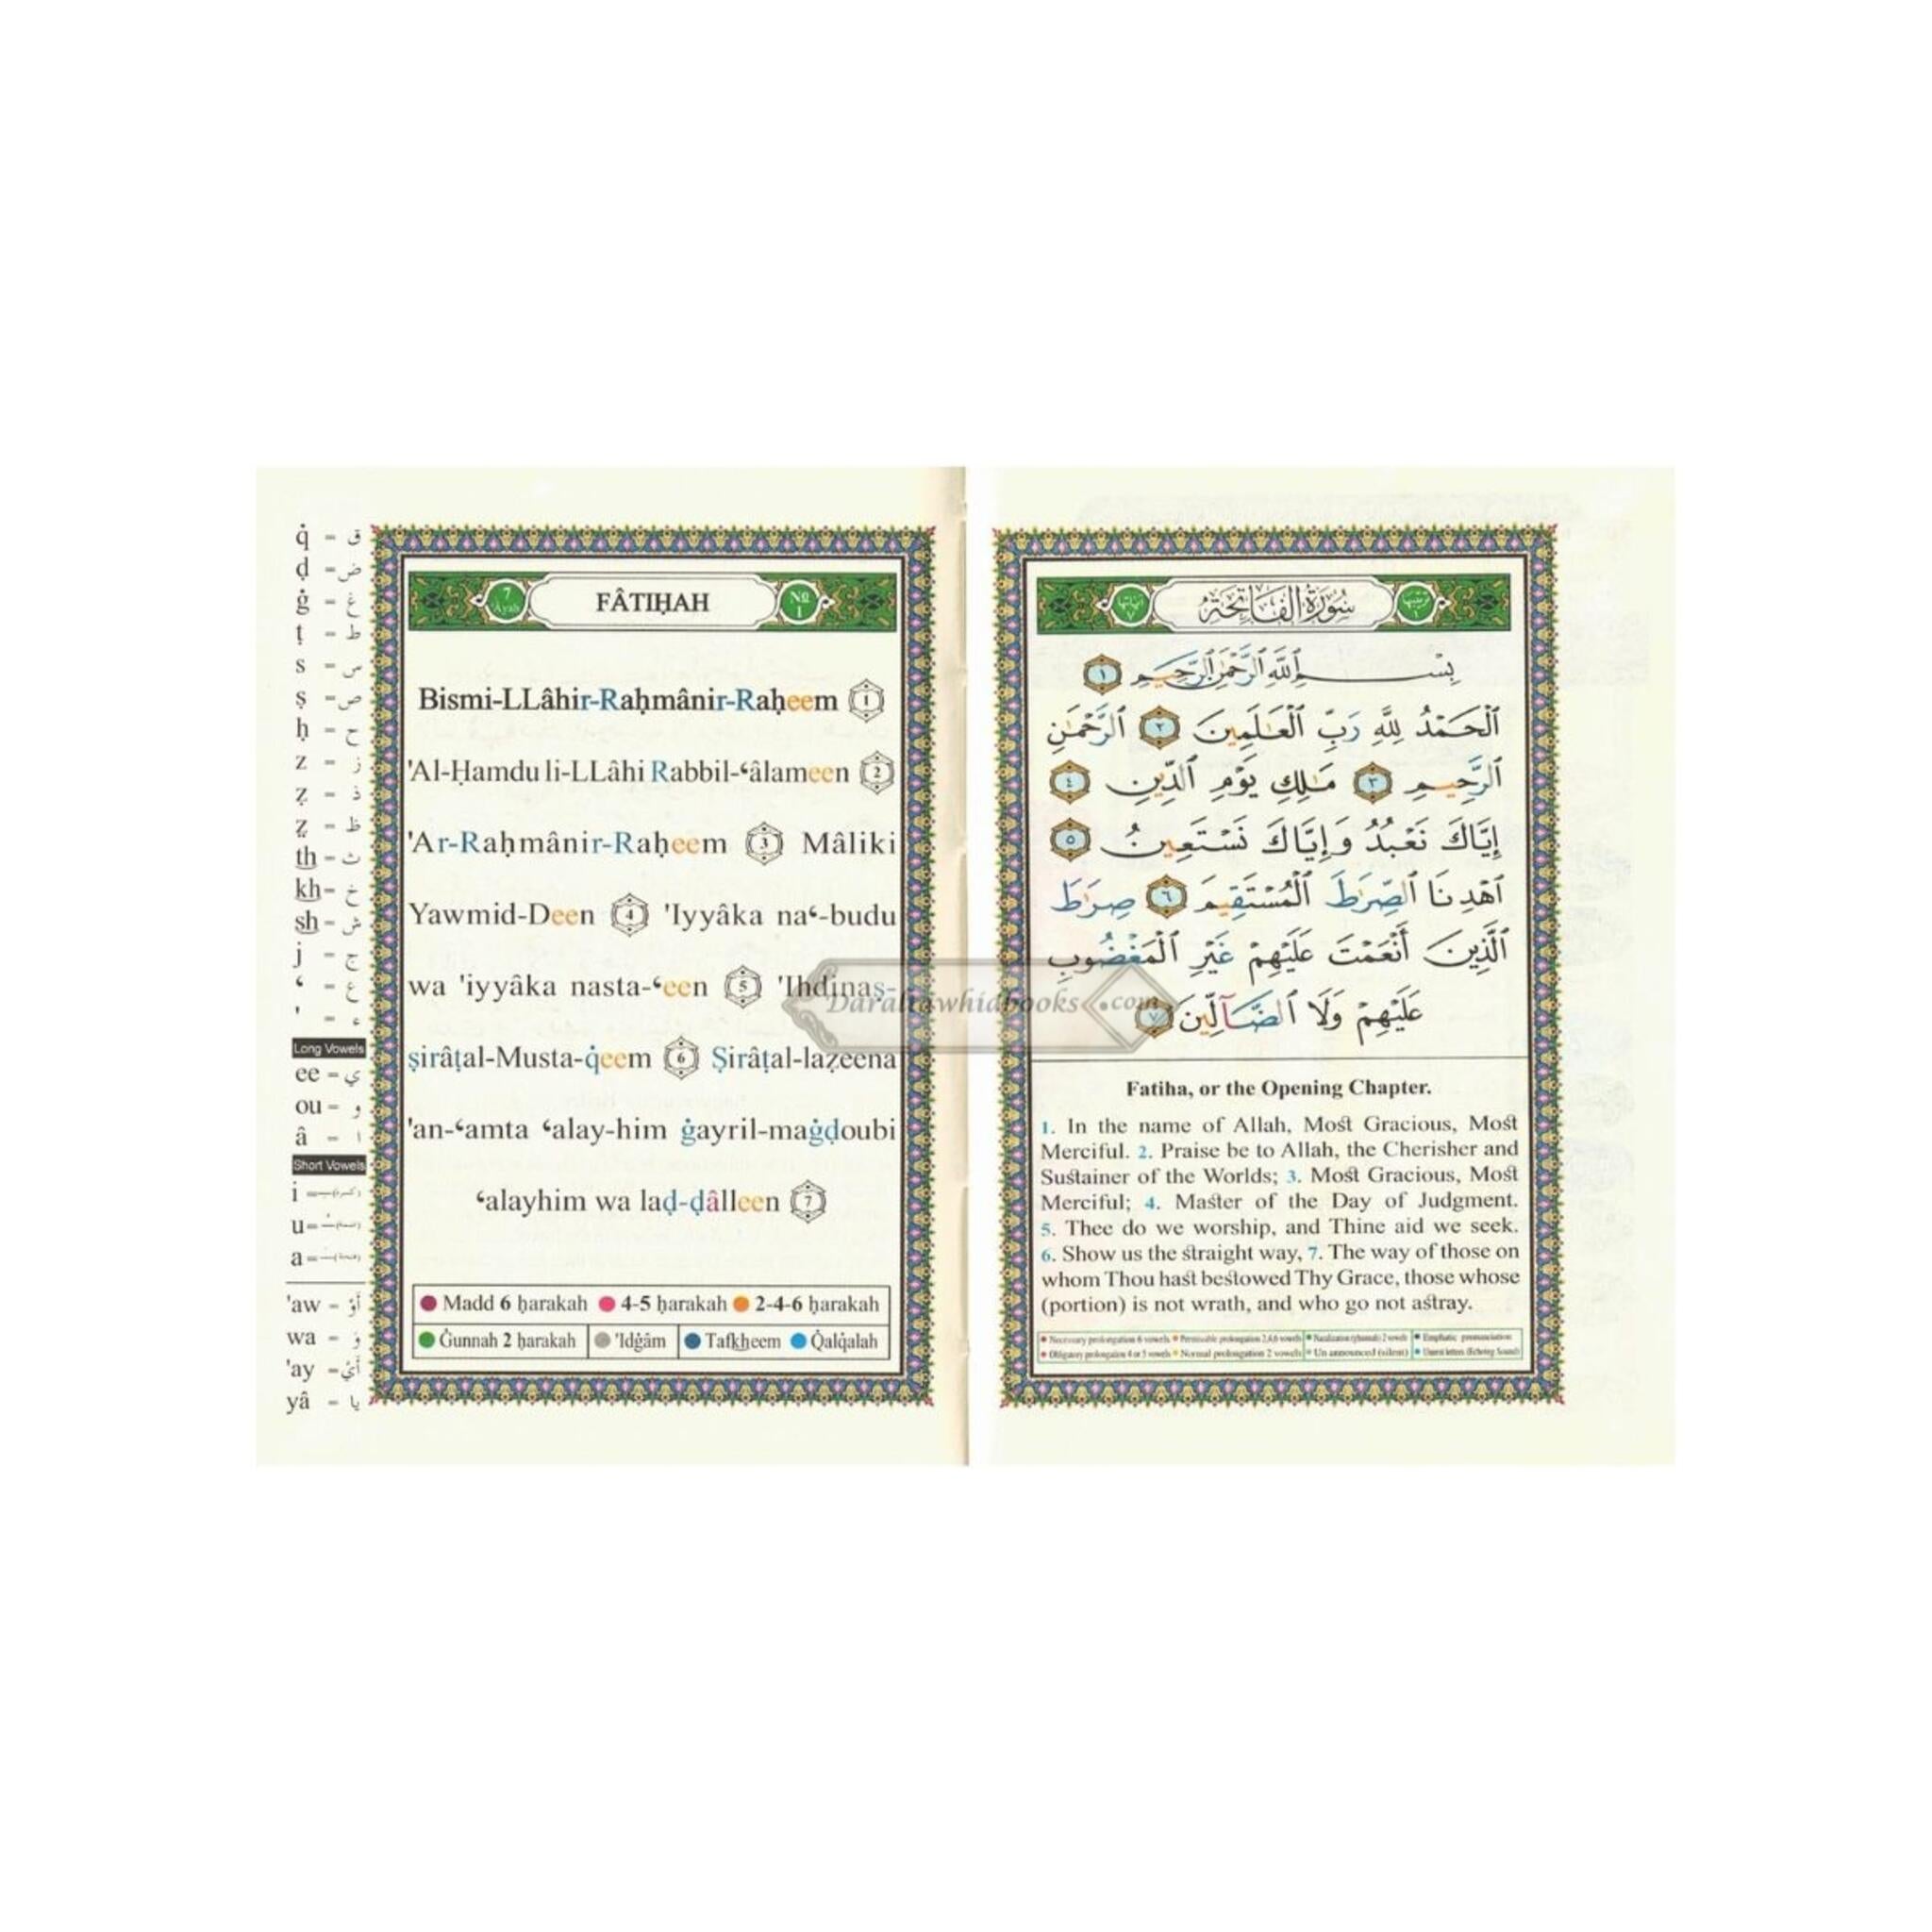 q̇ = ق
ḍ = ض
ġ = غ
ṭ = ط
s = س
ṣ = ص
ḥ = ح
z = ز
ẓ = ذ
ẓ̤ = ظ
th = ث
kh = خ
sh = ش
j = ج
ʿ = ع
' = ء
Long Vowels
ee = ي
ou = و
â = ا
Short Vowels
i = (كسرة)
u =
a = (فتحة)
'aw = أَوْ
wa = وَ
'ay = أَيْ
yâ = يا
7 'Âyah FÂTIḤAH № 1
Bismi-LLâhir-Raḥmânir-Raḥeem 1
'Al-Ḥamdu li-LLâhi Rabbil-ʿâlameen 2
'Ar-Raḥmânir-Raḥeem 3 Mâliki
Yawmid-Deen 4 'Iyyâka naʿ-budu
wa 'iyyâka nasta-ʿeen 5 'Ihdinaṣ-
ṣirâṭal-Musta-q̇eem 6 Ṣirâṭal-laẓeena
'an-ʿamta ʿalay-him ġayril-maġḍoubi
ʿalayhim wa laḍ-ḍâlleen 7
Madd 6 ḥarakah 4-5 ḥarakah 2-4-6 ḥarakah
Ġunnah 2 ḥarakah 'Idġâm Tafkheem Q̇alq̇alah
سُورَةُ الفَاتِحَةِ
بِسْمِ ٱللَّهِ ٱلرَّحْمَٰنِ ٱلرَّحِيمِ ١
ٱلْحَمْدُ لِلَّهِ رَبِّ ٱلْعَٰلَمِينَ ٢ ٱلرَّحْمَٰنِ
ٱلرَّحِيمِ ٣ مَٰلِكِ يَوْمِ ٱلدِّينِ ٤
إِيَّاكَ نَعْبُدُ وَإِيَّاكَ نَسْتَعِينُ ٥
ٱهْدِنَا ٱلصِّرَٰطَ ٱلْمُسْتَقِيمَ ٦ صِرَٰطَ
ٱلَّذِينَ أَنْعَمْتَ عَلَيْهِمْ غَيْرِ ٱلْمَغْضُوبِ
عَلَيْهِمْ وَلَا ٱلضَّآلِّينَ ٧
Daraltawhidbooks.com
Fatiha, or the Opening Chapter.
1. In the name of Allah, Most Gracious, Most
Merciful. 2. Praise be to Allah, the Cherisher and
Sustainer of the Worlds; 3. Most Gracious, Most
Merciful; 4. Master of the Day of Judgment.
5. Thee do we worship, and Thine aid we seek.
6. Show us the straight way, 7. The way of those on
whom Thou hast bestowed Thy Grace, those whose
(portion) is not wrath, and who go not astray.
Necessary prolongation 6 vowels Permissible prolongation 2,4,6 vowels Nazalization (ghunnah) 2 vowels Emphatic pronunciation
Obligatory prolongation 4 or 5 vowels Normal prolongation 2 vowels Un announced (silent) Unrest letters (Echoing Sound)